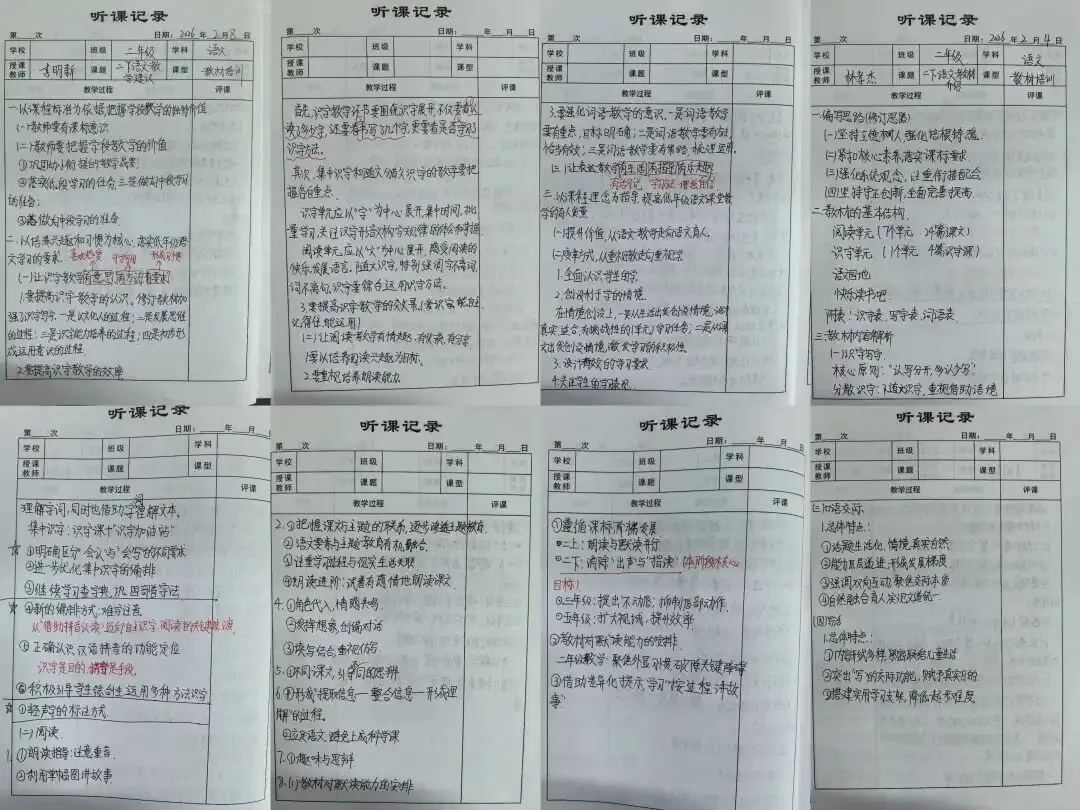 听课记录
第 次 日期：2026 年 2 月 8 日
学校 班级 二年级 学科 语文
授课教师 李明新 课题 二下语文教学建议 课型 教材培训
教学过程 评课
一.以课程标准为依据,把握学段教学的独特价值
(一)教师要有课标意识
(二)教师要把握学段教学的价值
①巩固幼小衔接的教学成果
②落实低段学习的任务;三是做好中段学习
的准备;
③着做好中段学习的准备
二.以培养兴趣和习惯为核心,落实低年级语
文学习的要求
(一)让识字教学有意思,有方法,有要求
1.要提高识字教学的认识。修订教材加
强了识字写字.一是文化认同过程;二是发展思维
的过程;三是识字能力培养的过程;四是初步形
成运用意识的过程
2.要提高识字教学的效率
听课记录
第 次 日期： 年 月 日
学校 班级 学科
授课教师 课题 课型
教学过程 评课
首先,识字教学还是要围绕识字展开,不仅要看认
读多少字,还要看书写几个字,更要看是否学习
识字方法。
其次,集中识字和随文分散识字的教学要把
握各自重点
识字单元应以“字”为中心展开,集中时间,批
量学习,关注汉字形音构字规律的体会和掌握
阅读单元,应以“文”为中心展开,感受阅读的
快乐,发展语言,随文识字,特别强调字不离词,
词不离句,识字要综合运用识字方法。
3.要提高识字教学的效果(要识字,能
记得住,能运用)
(二)让阅读教学有情趣,有收获,有分享
1.要以培养阅读兴趣为目标。
2.要重视培养朗读能力.
听课记录
学校 班级 学科
授课教师 课题 课型
教学过程 评课
3.要强化词语教学的意识,一是词语教学
要有重点,目标明确;二是词语教学要有效,
恰当有效;三是词语教学要有策略,梳理运用.
三.以课程理念为指导,提高低年级语文课堂教
学的育人质量
(一)提升价值,从语文教学走向语文育人.
(二)改革方式,从重视教走向重视学
1.全面认识学生的学.
2.创设利于学的情境.
3.设计有效的学习要求.
4.关注学生的学习表现
听课记录
第 次 日期：2026 年 2 月 4 日
学校 班级 二年级 学科 语文
授课教师 课题 二下语文教材介绍 课型 教材培训
教学过程 评课
一.编写思路(修订思路)
(一)坚持立德树人,强化铸根铸魂
(二)紧扣核心素养,落实课标要求
(三)强化系统观念,注重衔接配合
(四)坚持守正创新,全面完善提高
二.教材的基本结构.
阅读单元(7个单元 24篇课文)
识字单元(1个单元 4篇识字课)
语文园地
快乐读书吧
附表:识字表、写字表、词语表.
三.教材内容解析
(一)识字写字.
核心原则:“认写分开,多认少写”
分散识字:随文识字,重视借助语境
听课记录
第 次 日期： 年 月
学校 班级 学科
授课教师 课题 课型
教学过程 评课
理解字词,同时也借助字理解文本.
集中识字:识字课+“识字加油站”
①明确区分“会认”与“会写”的不同要求
②进一步优化集中识字的编排
③继续学习查字典,巩固部首查字法
④新的编排方式:难字注音
⑤正确认识汉语拼音的功能定位
识字是目的,拼音是手段.
⑥积极引导学生综合运用多种方法识字
⑦轻声字的标注方式
(二)阅读
1.①朗读指导:注意重音
②利用掌握图讲故事
听课记录
第 次 日期： 年 月 日
学校 班级 学科
授课教师 课题 课型
教学过程 评课
2.①把握课文与主题的联系,逐步渗透主题教育
②语文要素与主题教育有机融合.
③注重学习路径与现实生活关联
④朗读进阶:试着有感情地朗读课文
4.①角色代入,情感共鸣
②发挥想象,创编对话
③读写结合,重视仿写.
5.①同课文,引导问的思辨
6.①形成“提取信息—整合信息—形成理
解”的过程.
②立足语文,避免上成科学课
7.①趣味与思辨
8.(1)教材对默读能力的安排
听课记录
第 次 日期： 年 月 日
学校 班级 学科
授课教师 课题 课型
教学过程 评课
①遵循课标,阶梯发展
二上:朗读与默读并行
二下:消除“出声”与“指读”(本阶段核心
目标)
三年级:提出“不动唇”,抑制唇部动作.
五年级:扩大视域,提升效率
②教材对默读能力的安排.
③借助差异化提示,学习“按过程讲故
事”
听课记录
第 次 日期： 年 月 日
学校 班级 学科
授课教师 课题 课型
教学过程 评课
(三)口语交际
1.总体特点:
①话题生活化,情境真实自然
②能力层层递进,形成发展梯度
③强调双向互动,聚焦交际本质
④自然融合育人,实现文道统一.
(四)写话
1.总体特点:
①内容形式多样,紧密联结儿童生活
②突出“写”的交际功能,赋予真实目的
③搭建实用学习支架,降低起步难度